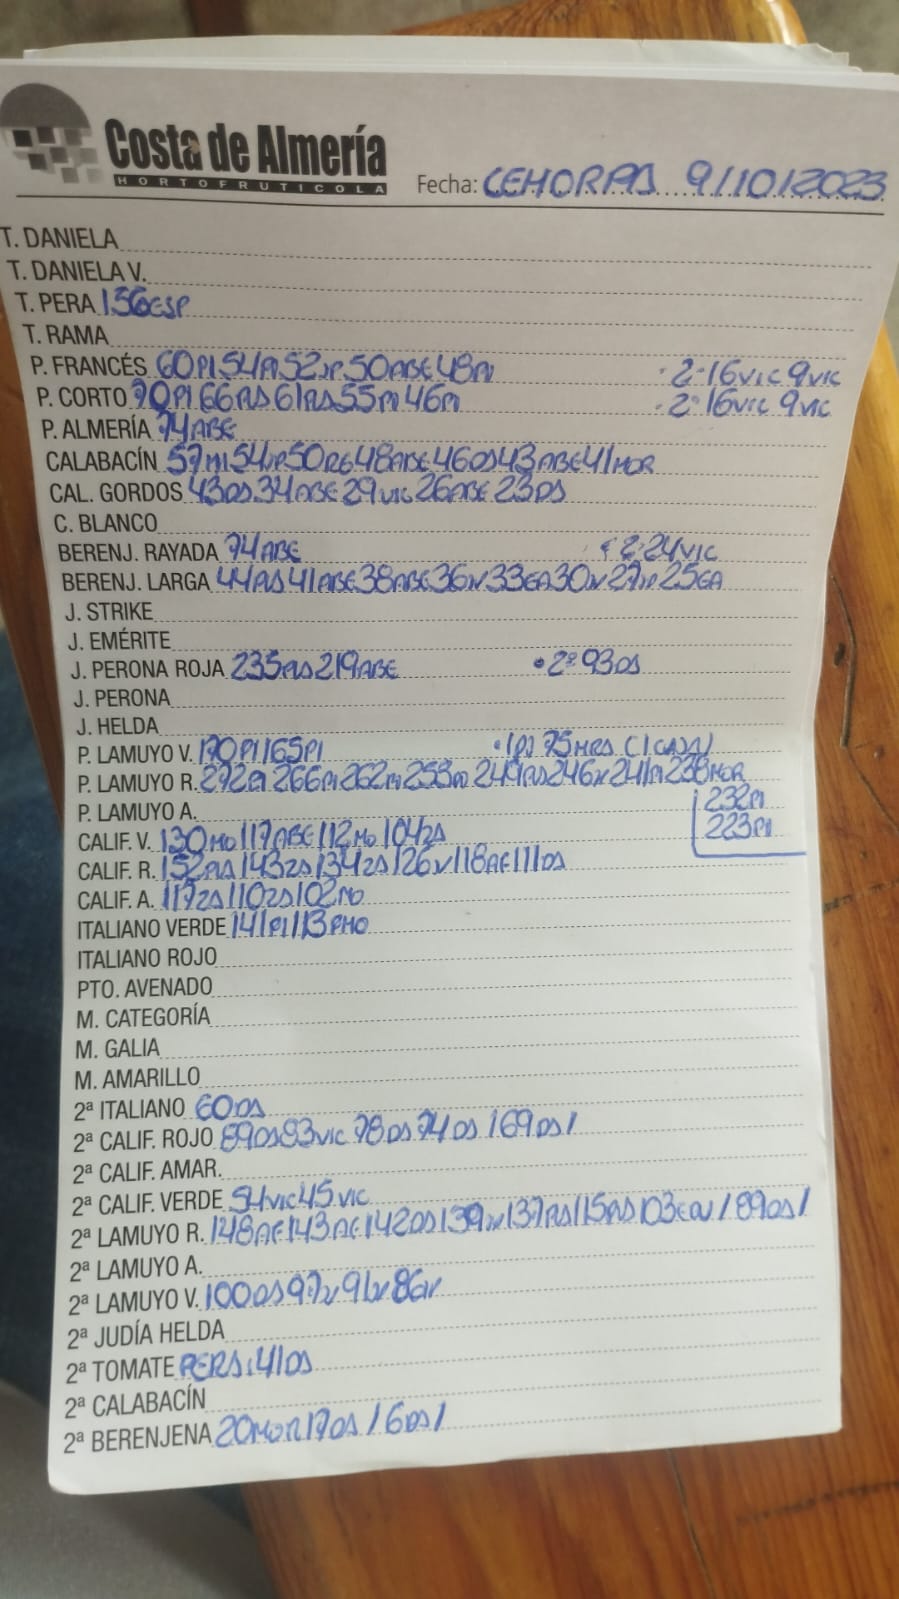 Costa de Almería
HORTOFRUTICOLA
Fecha: CEHORPA 9/10/2023
T. DANIELA
T. DANIELA V.
T. PERA 136ESP
T. RAMA
P. FRANCÉS 60PI 54PI 52JP 50ABE 48PI · 2ª 16VIC 9VIC
P. CORTO 70PI 66PJS 61PJS 55PI 46PI · 2ª 16VIC 9VIC
P. ALMERÍA 74ABE
CALABACÍN 57MI 54JP 50RG 48ABE 46DS 43ABE 41MOR
CAL. GORDOS 43DS 34ABE 29VIC 26ABE 23DS
C. BLANCO
BERENJ. RAYADA 74ABE · 2ª 24VIC
BERENJ. LARGA 44PJS 41ABE 38ABE 36JV 33EA 30JV 27JP 25EA
J. STRIKE
J. EMÉRITE
J. PERONA ROJA 235PJS 219ABE · 2ª 93DS
J. PERONA
J. HELDA
P. LAMUYO V. 170PI 165PI · 75MRS (1 CAJA)
P. LAMUYO R. 272PI 266PI 262PI 253 249PJS 246 241PI 238MOR
232PI
P. LAMUYO A.
223PI
CALIF. V. 130MO 117ABE 112MO 104ZA
CALIF. R. 152PJS 143ZA 134ZA 126JV 118AE 111DS
CALIF. A. 117ZA 110ZA 102MO
ITALIANO VERDE 141PI 113PMO
ITALIANO ROJO
PTO. AVENADO
M. CATEGORÍA
M. GALIA
M. AMARILLO
2ª ITALIANO 60DS
2ª CALIF. ROJO 89DS 83VIC 78DS 74DS /69DS/
2ª CALIF. AMAR.
2ª CALIF. VERDE 54VIC 45VIC
2ª LAMUYO R. 148AE 143AE 142DS 139JV 137PJS 115PJS 103 /89DS/
2ª LAMUYO A.
2ª LAMUYO V. 100DS 97JV 91JV 86JV
2ª JUDÍA HELDA
2ª TOMATE PERA: 41DS
2ª CALABACÍN
2ª BERENJENA 20MOR 17DS /6DS/